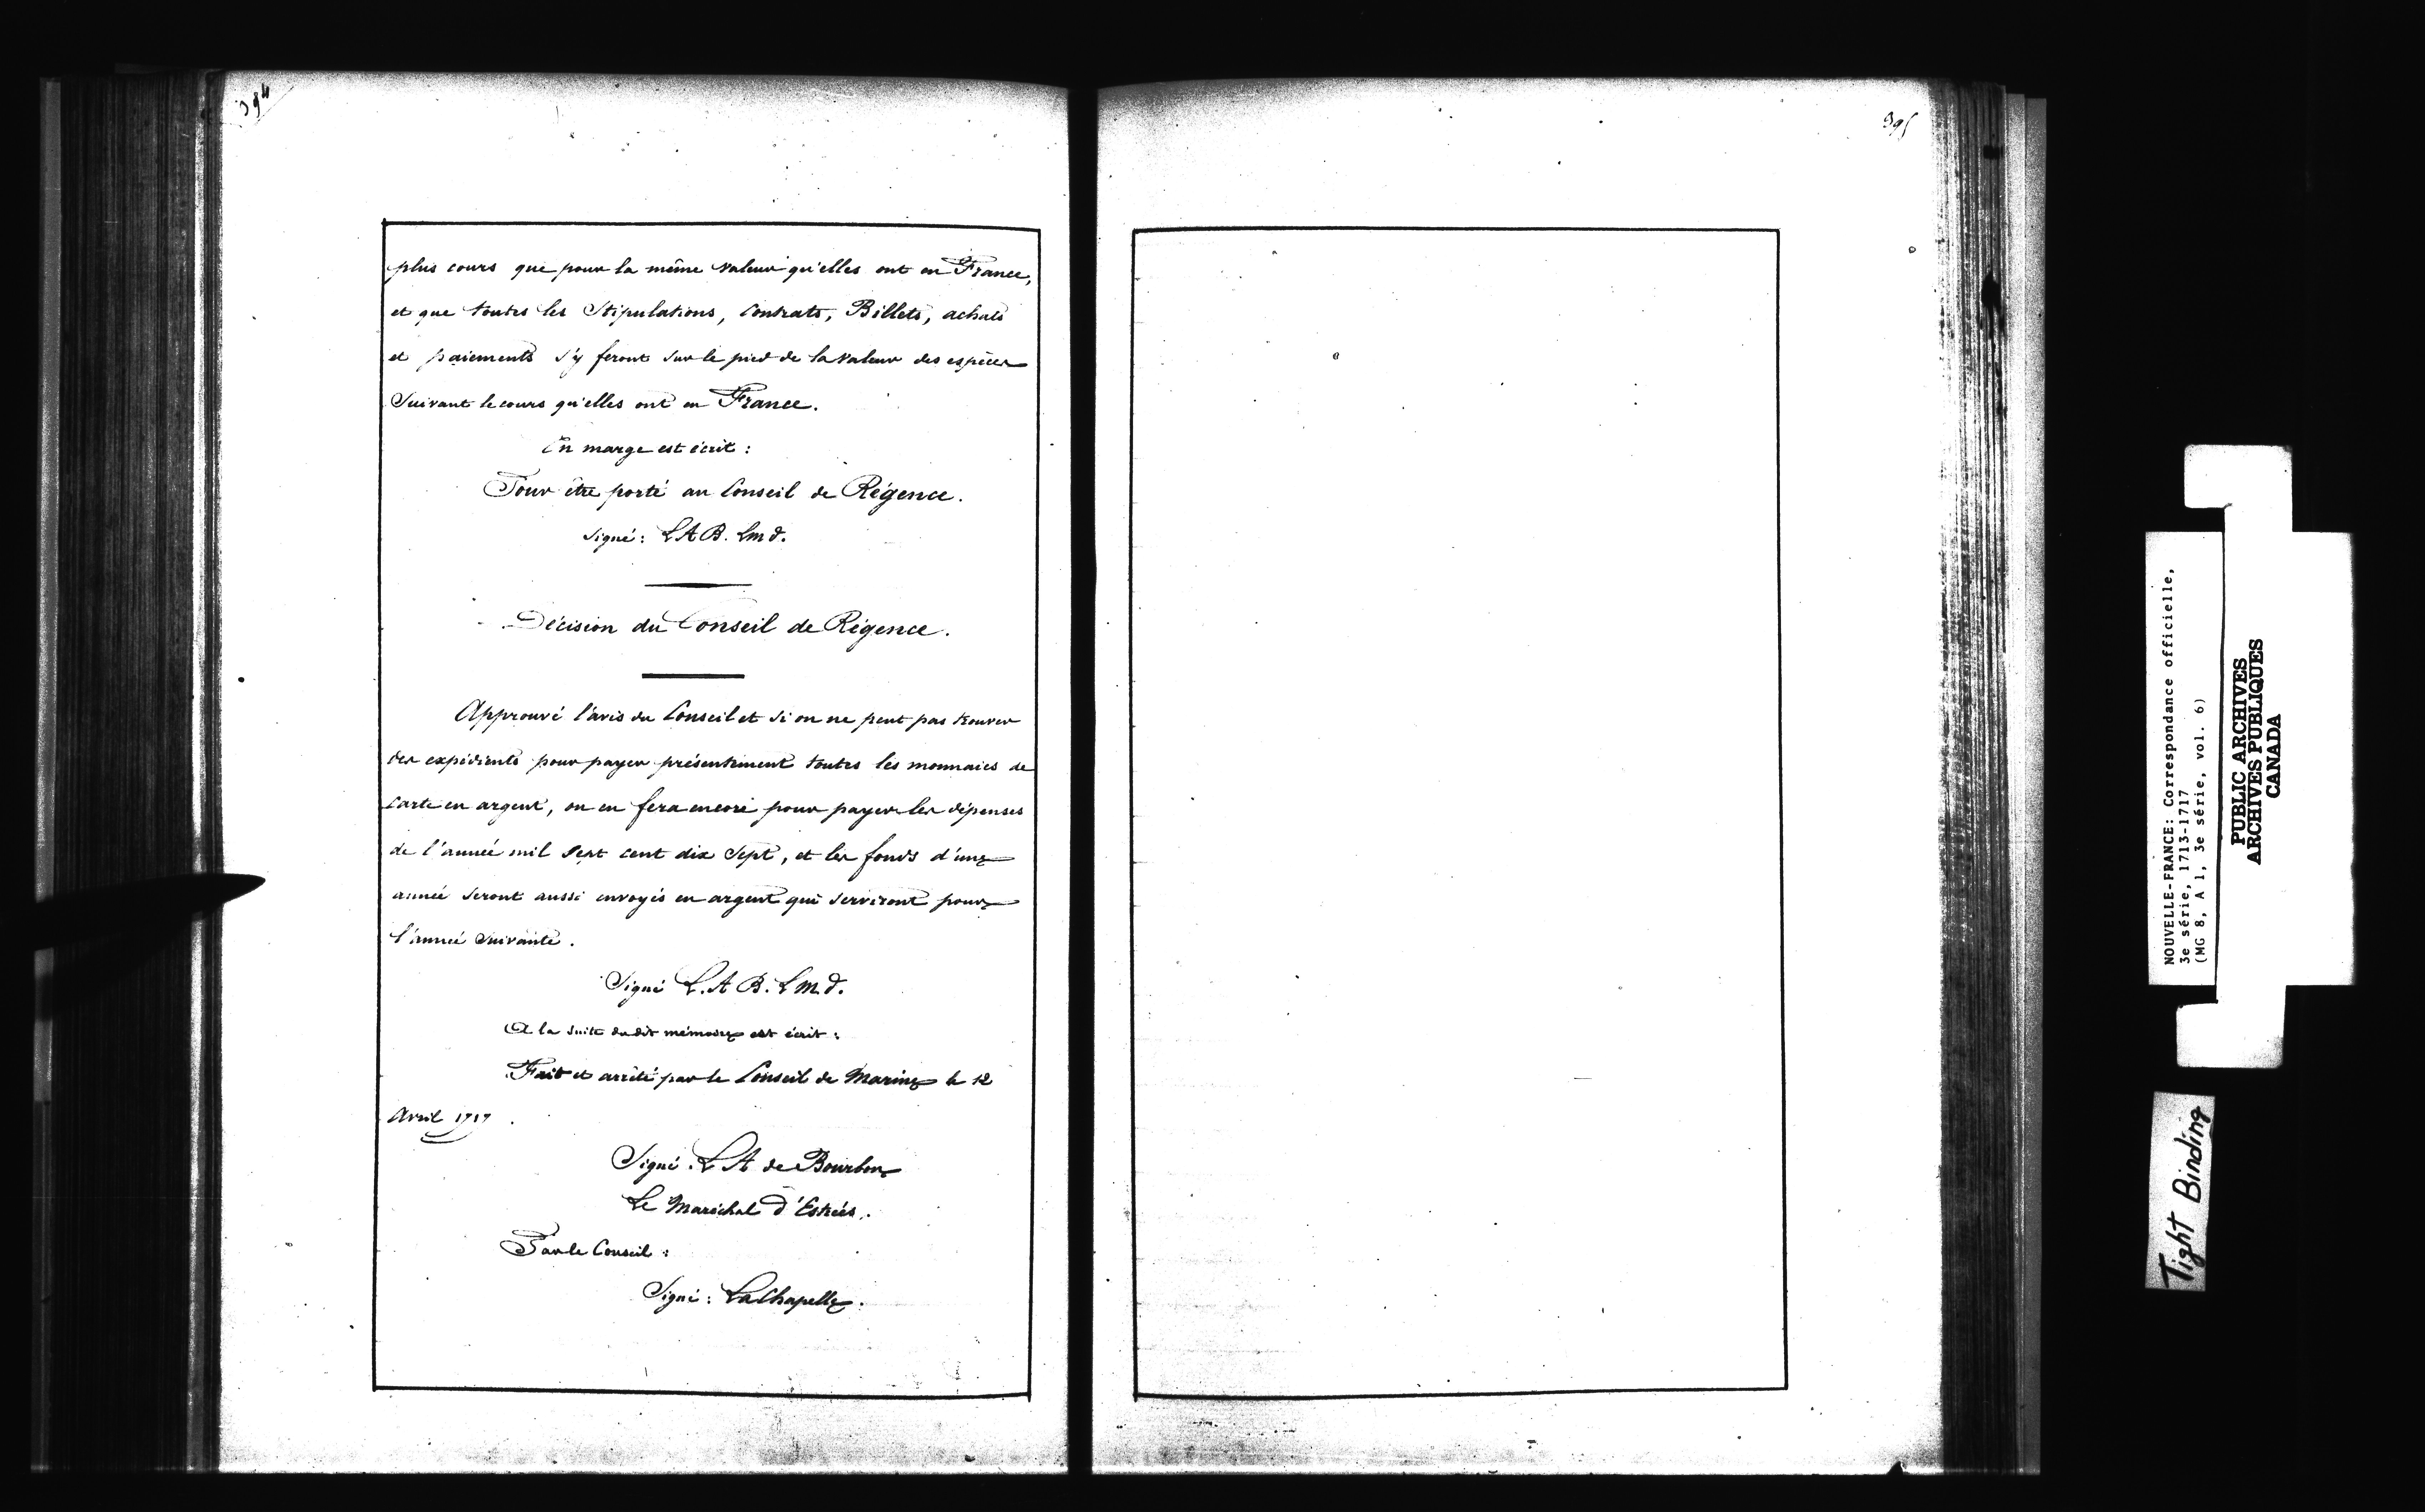 394
plus cours que pour la même valeur qu'elles ont en France,
et que toutes les Stipulations, Contrats, Billets, achats
et paiements s'y feront sur le pied de la valeur des espèces
Suivant le cours qu'elles ont en France.
En marge est écrit :
Pour être porté au Conseil de Régence.
signé : L A B. L m d.
Décision du Conseil de Régence.
Approuvé l'avis du Conseil et si on ne peut pas trouver
des expédients pour payer présentement toutes les monnaies de
Carte en argent, on en fera encore pour payer les dépenses
de l'année mil Sept cent dix Sept, et les fonds d'une
année seront aussi envoyés en argent qui serviront pour
l'année suivante.
Signé L. A B. L m. d.
A la suite du dit mémoire est écrit :
Fait et arrêté par le Conseil de Marine le 12
Avril 1717.
Signé : L A de Bourbon
Le Maréchal d'Estrées.
Par le Conseil :
Signé : La Chapelle.
395
NOUVELLE-FRANCE: Correspondance officielle,
3e série, 1713-1717
(MG 8, A 1, 3e série, vol. 6)
PUBLIC ARCHIVES
ARCHIVES PUBLIQUES
CANADA
Tight Binding